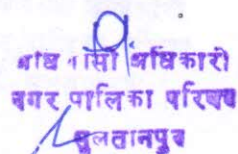 अधिशासी अधिकारी
नगर पालिका परिषद
सुलतानपुर